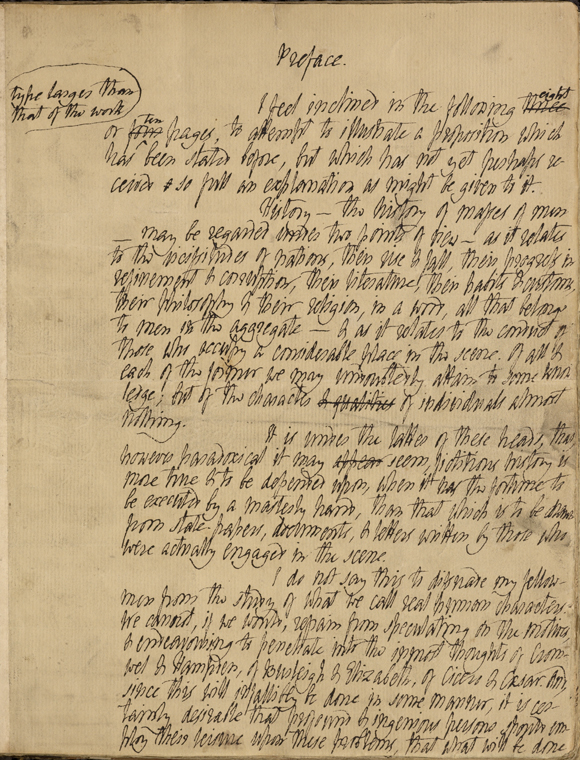 Preface.
type larger than
that of the work
I feel inclined in the following three eight
or four ten pages, to attempt to illustrate a proposition which
has been stated before, but which has not yet perhaps re-
ceived so full an explanation as might be given to it.
History — the history of masses of men
— may be regarded under two points of view — as it relates
to the vicissitudes of nations, their rise & fall, their progress in
refinement & corruption, their literature, their habits & customs,
their philosophy & their religion, in a word, all that belongs
to men in the aggregate — & as it relates to the conduct of
those who occupy a considerable place in the scene. Of all &
each of the former we may undoubtedly attain to some know
ledge; but of the character & qualities of individuals almost
nothing.
It is under the latter of these heads, that,
however paradoxical it may appear seem, fictitious history is
more true & to be depended upon, when it has the fortune to
be executed by a masterly hand, than that which is to be drawn
from state-papers, documents, & letters written by those who
were actually engaged in the scene.
I do not say this to dissuade my fellow-
men from the study of what we call real human character:
we cannot, if we would, refrain from speculating on the motives,
& endeavouring to penetrate into the inmost thoughts of Crom-
wel & Hampden, of Burleigh & Elizabeth, of Cicero & Caesar. And
since this will infallibly be done in some manner, it is cer-
tainly desirable that profound & ingenious persons should em-
ploy their leisure upon these problems, that what will be done